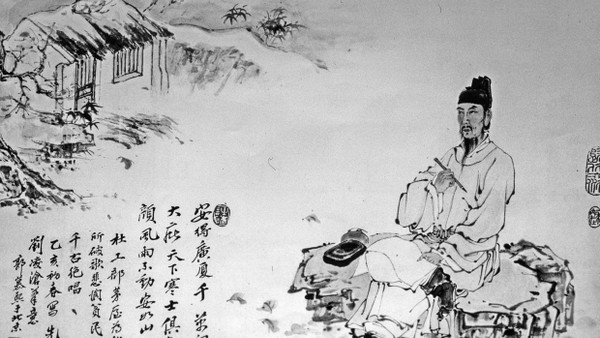 安得廣厦千萬
大庇天下寒士俱
顏風雨不動安如山
杜工部茅屋為
所破歌悲憫貧民
千古絕唱
乙亥初春寫
劉凌滄筆意
郭慕熙於北京